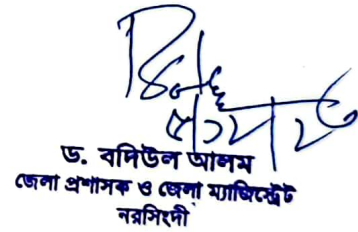 ড. বদিউল আলম
জেলা প্রশাসক ও জেলা ম্যাজিস্ট্রেট
নরসিংদী